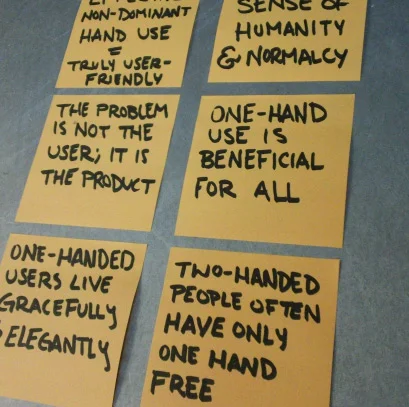 NON-DOMINANT
HAND USE
=
TRULY USER-
FRIENDLY
SENSE OF
HUMANITY
& NORMALCY
THE PROBLEM
IS NOT THE
USER; IT IS
THE PRODUCT
ONE-HAND
USE IS
BENEFICIAL
FOR ALL
ONE-HANDED
USERS LIVE
GRACEFULLY
& ELEGANTLY
TWO-HANDED
PEOPLE OFTEN
HAVE ONLY
ONE HAND
FREE